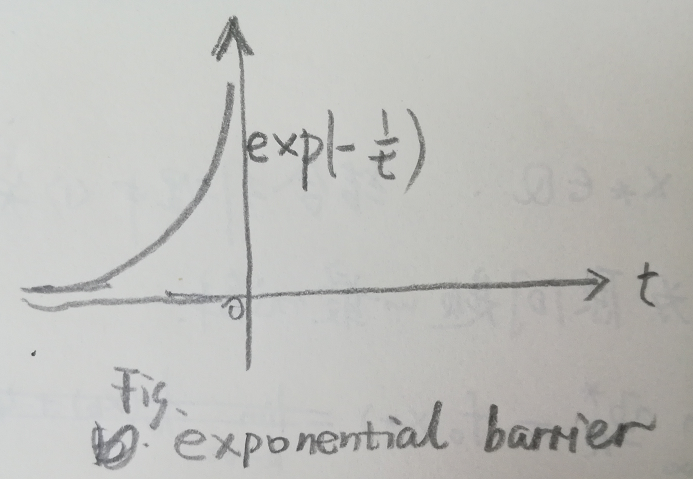 exp(-1/t)
t
0
Fig.
exponential barrier